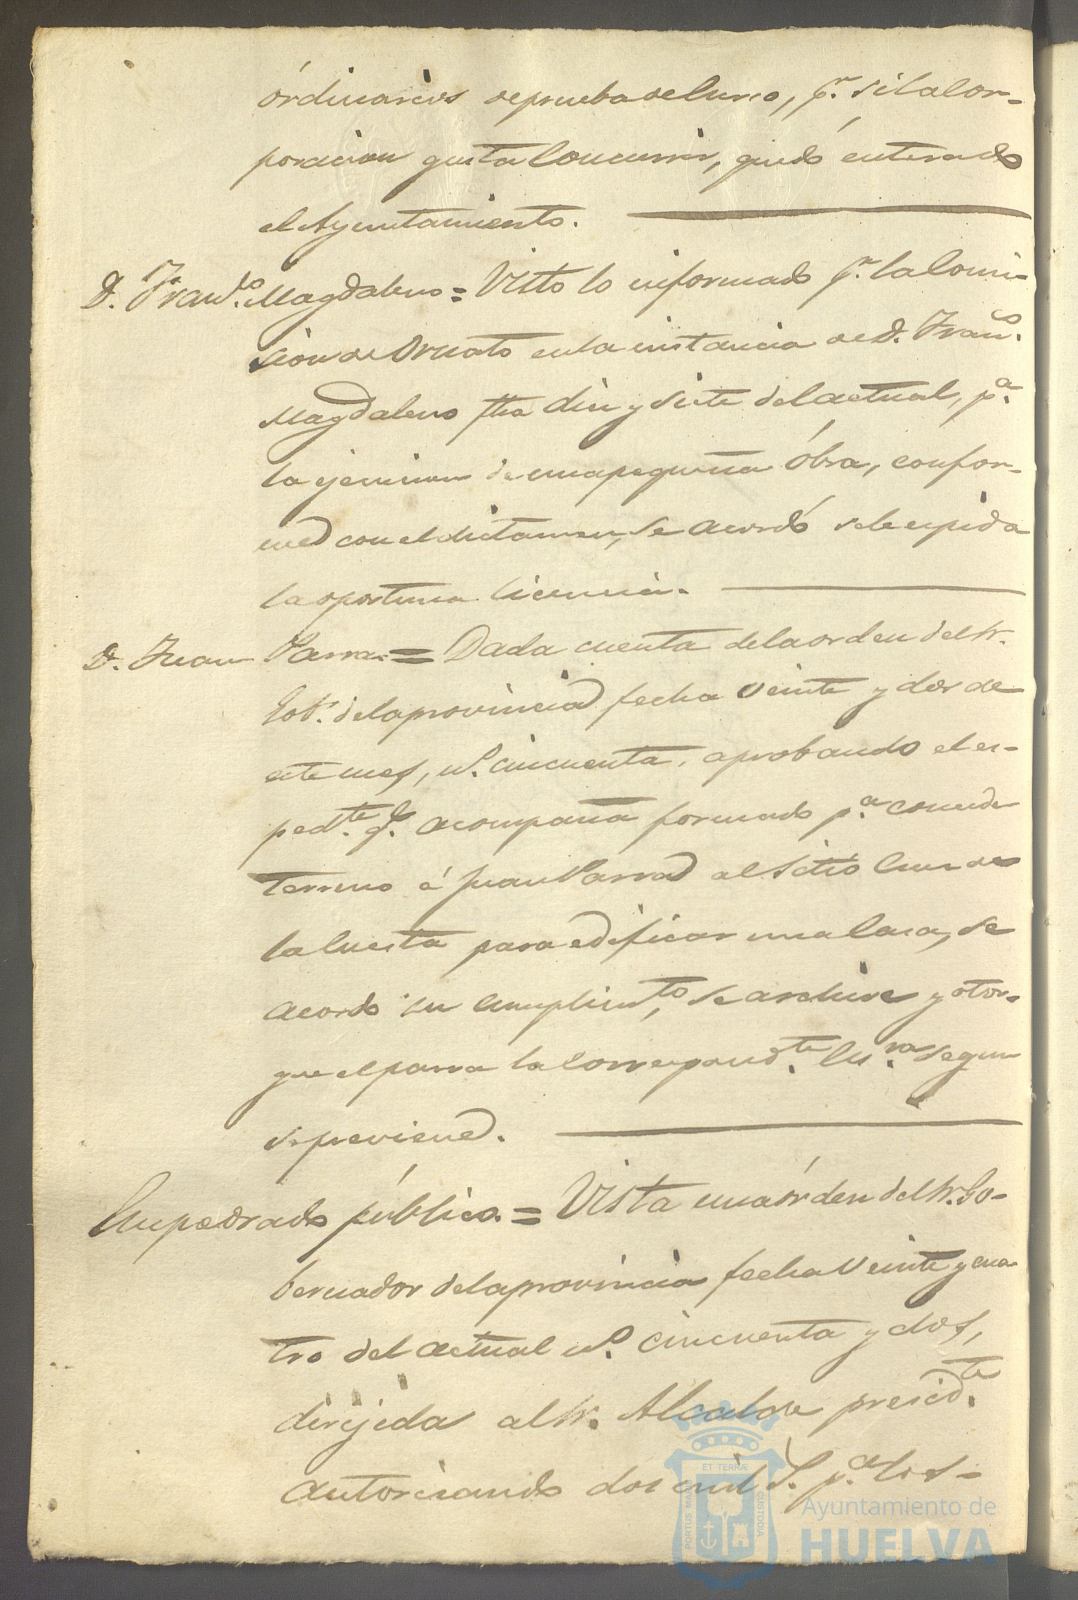 órdinarios de prueba de curso, pr. si la Cor-
poracion gusta Concurrir, quedó enterado
el Ayuntamiento.
D. Franco. Magdaleno = Visto lo informado pr. la Comi-
sion de Ornato en la instancia de D. Franco.
Magdaleno fha diez y siete del actual, pa.
la ejecucion de una pequeña óbra, confor-
me con el dictamen, se acordó se le espida
la oportuna licencia.
D. Juan Parra = Dada cuenta de la orden del Sr.
Gobr. de la provincia fecha veinte y dos de
este mes, no. cincuenta, aprobando el es-
pedte. qe. acompaña formado pa. conceder
terreno á Juan Parra al sitio de
la Cuesta para edificar una Casa, se
acordó su cumplimto, se archive y otor-
gue el parra la correspondte. Escra segun
se previene.
Empedrado público = Vista una órden del Sr. Go-
bernador de la provincia fecha veinte y cua-
tro del actual no. cincuenta y dos,
dirijida al Sr. Alcalde presidte.
autorizando dos mil pa. los
PORTUS MARIS
ET TERRAE
CUSTODIA
Ayuntamiento de
HUELVA